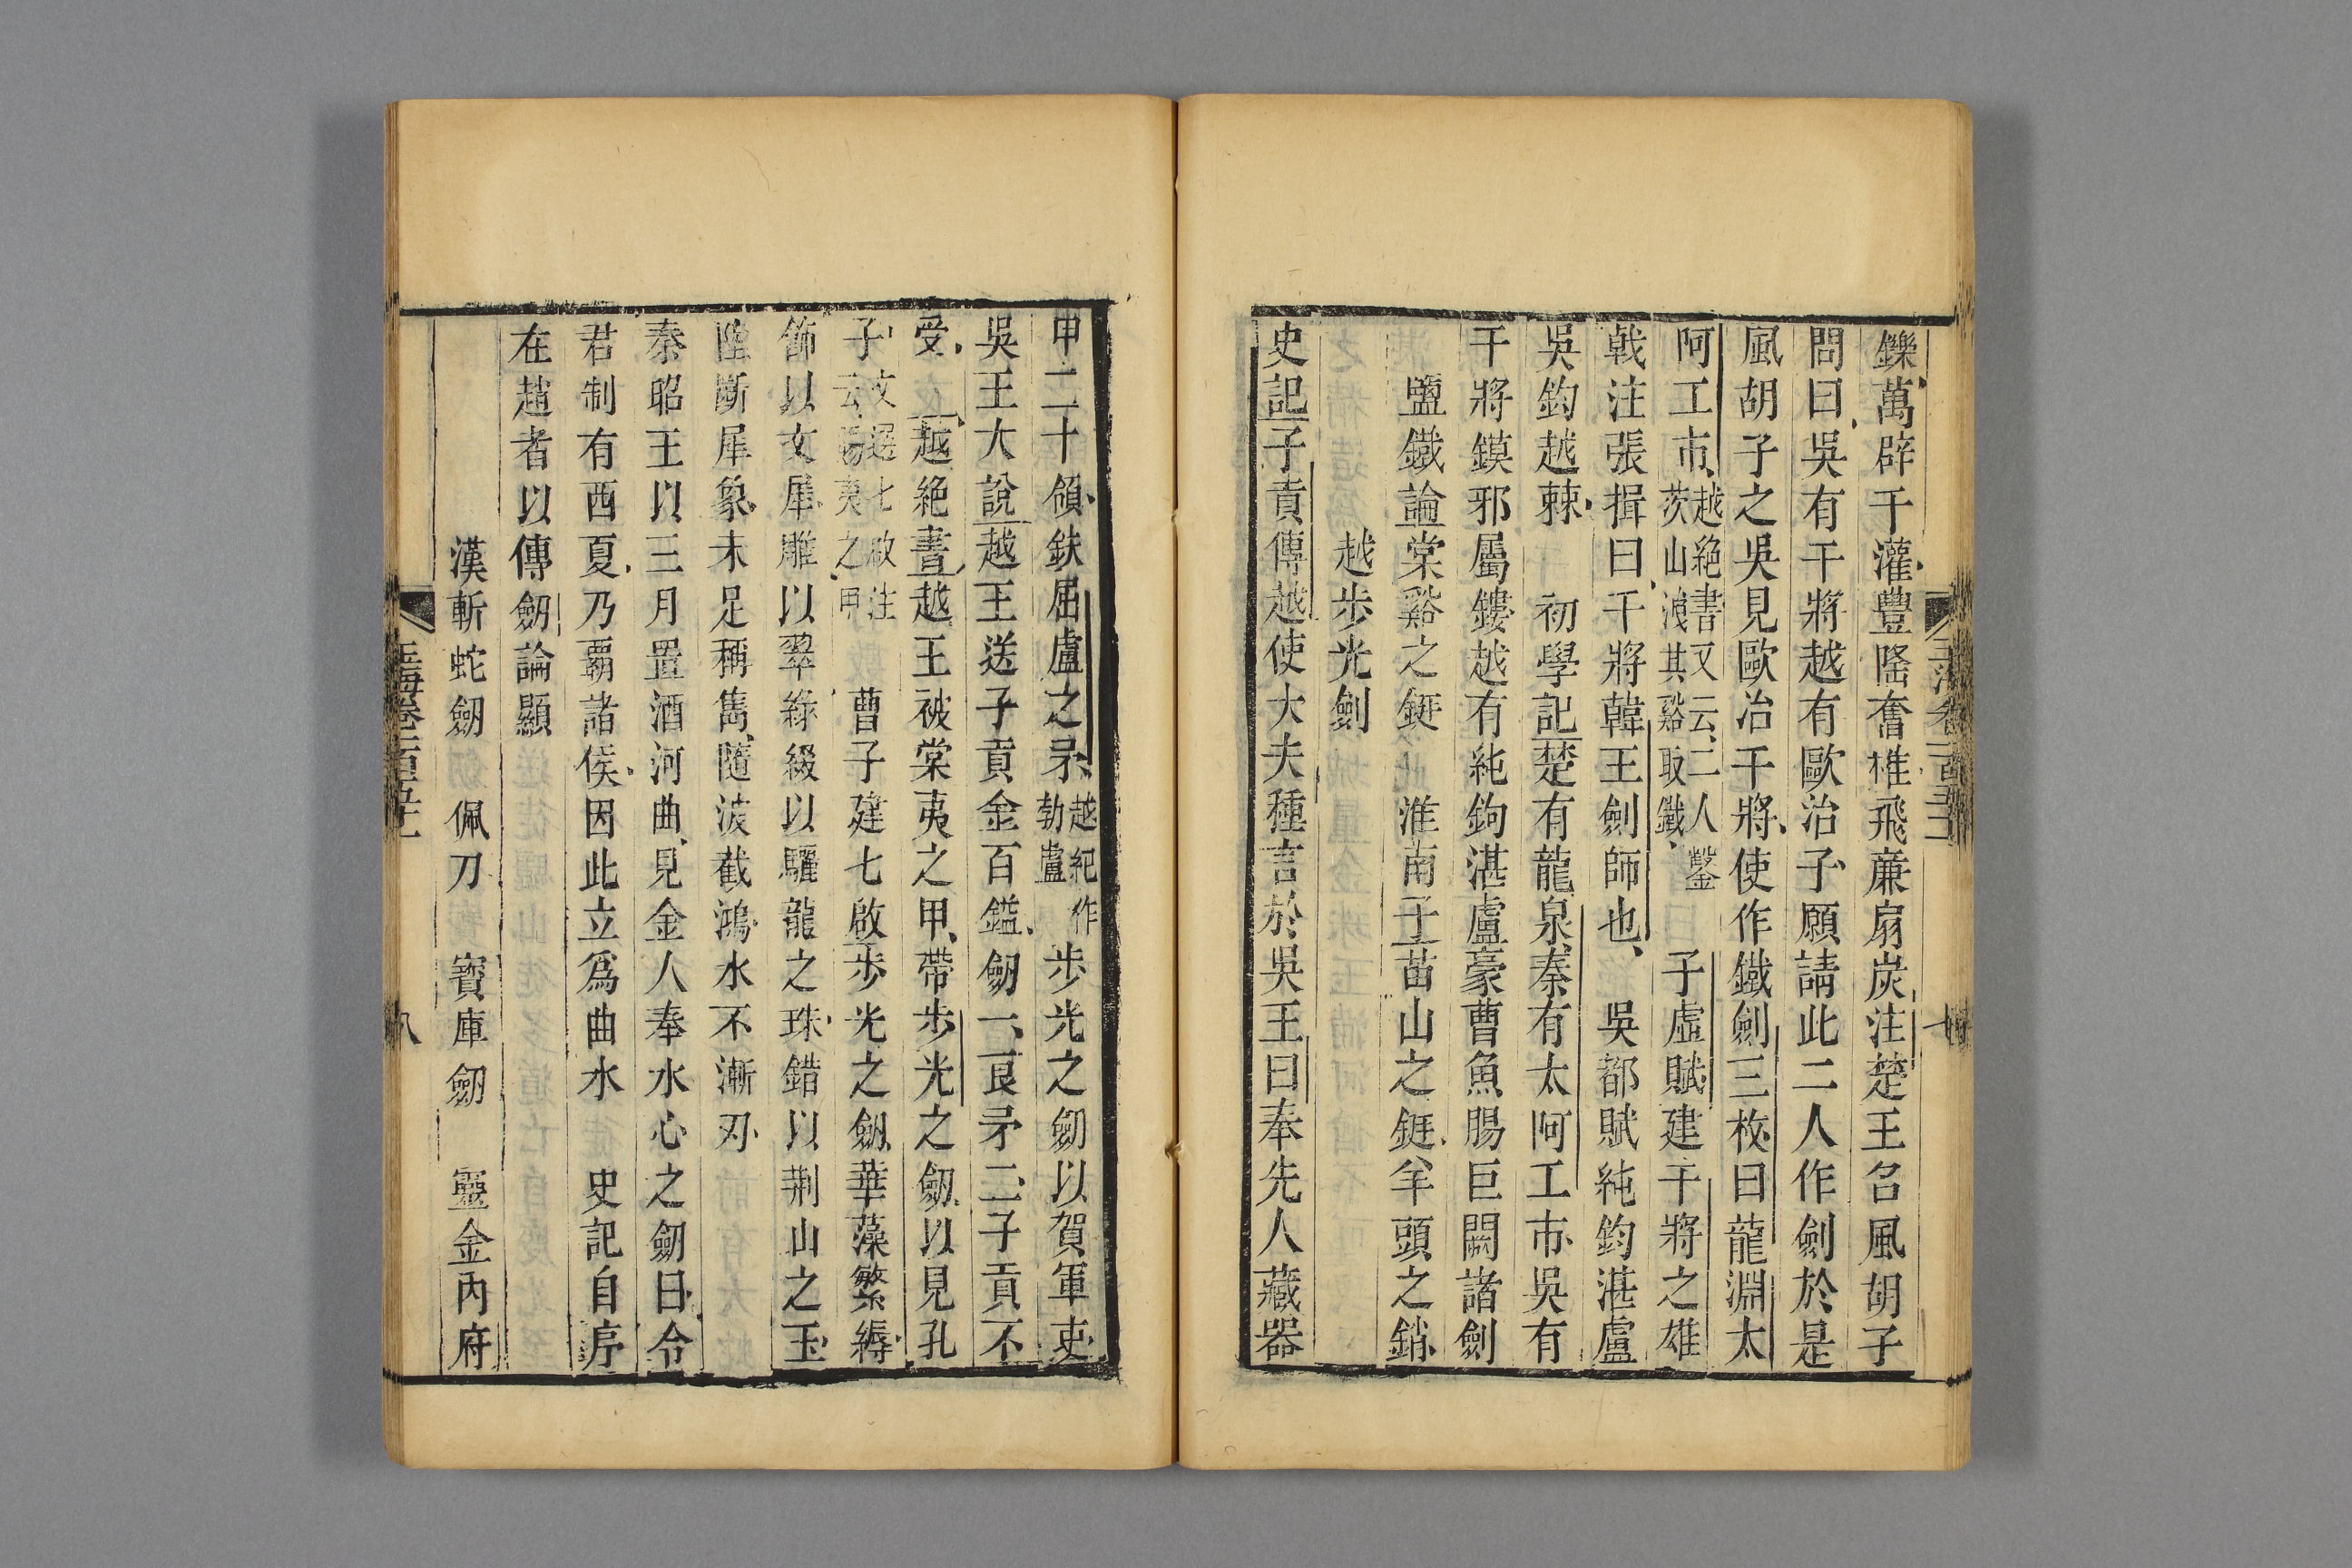 鑠萬辟千灌豐隆奮椎飛廉扇炭注楚王召風胡子
問曰吳有干將越有歐冶子願請此二人作劍於是
風胡子之吳見歐冶干將使作鐵劍三枚曰龍淵太
阿工市越絕書又云二人鑿茨山洩其谿取鐵 子虛賦建干將之雄
戟注張揖曰干將韓王劍師也 吳都賦純鈞湛盧
吳鈞越棘 初學記楚有龍泉秦有太阿工市吳有
干將鏌邪屬鏤越有純鉤湛盧豪曹魚腸巨闕諸劍
鹽鐵論棠谿之鋌 淮南子苗山之鋌羊頭之銷
越步光劍
史記子貢傳越使大夫種言於吳王曰奉先人藏器
甲二十領鈇屈盧之矛越紀作勃盧步光之劒以賀軍吏
吳王大說越王送子貢金百鎰劒一良矛二子貢不
受 越絕書越王被棠夷之甲帶步光之劒以見孔
子文選七啟注云暢夷之甲 曹子建七啟步光之劒華藻繁縟
飾以文犀雕以翠綠綴以驪龍之珠錯以荆山之玉
陸斷犀象未足稱雋隨波截鴻水不漸刃
秦昭王以三月置酒河曲見金人奉水心之劒曰令
君制有西夏乃霸諸侯因此立為曲水 史記自序
在趙者以傳劒論顯
漢斬蛇劒 佩刀 寶庫劒 靈金內府
玉海卷一百五十一 八